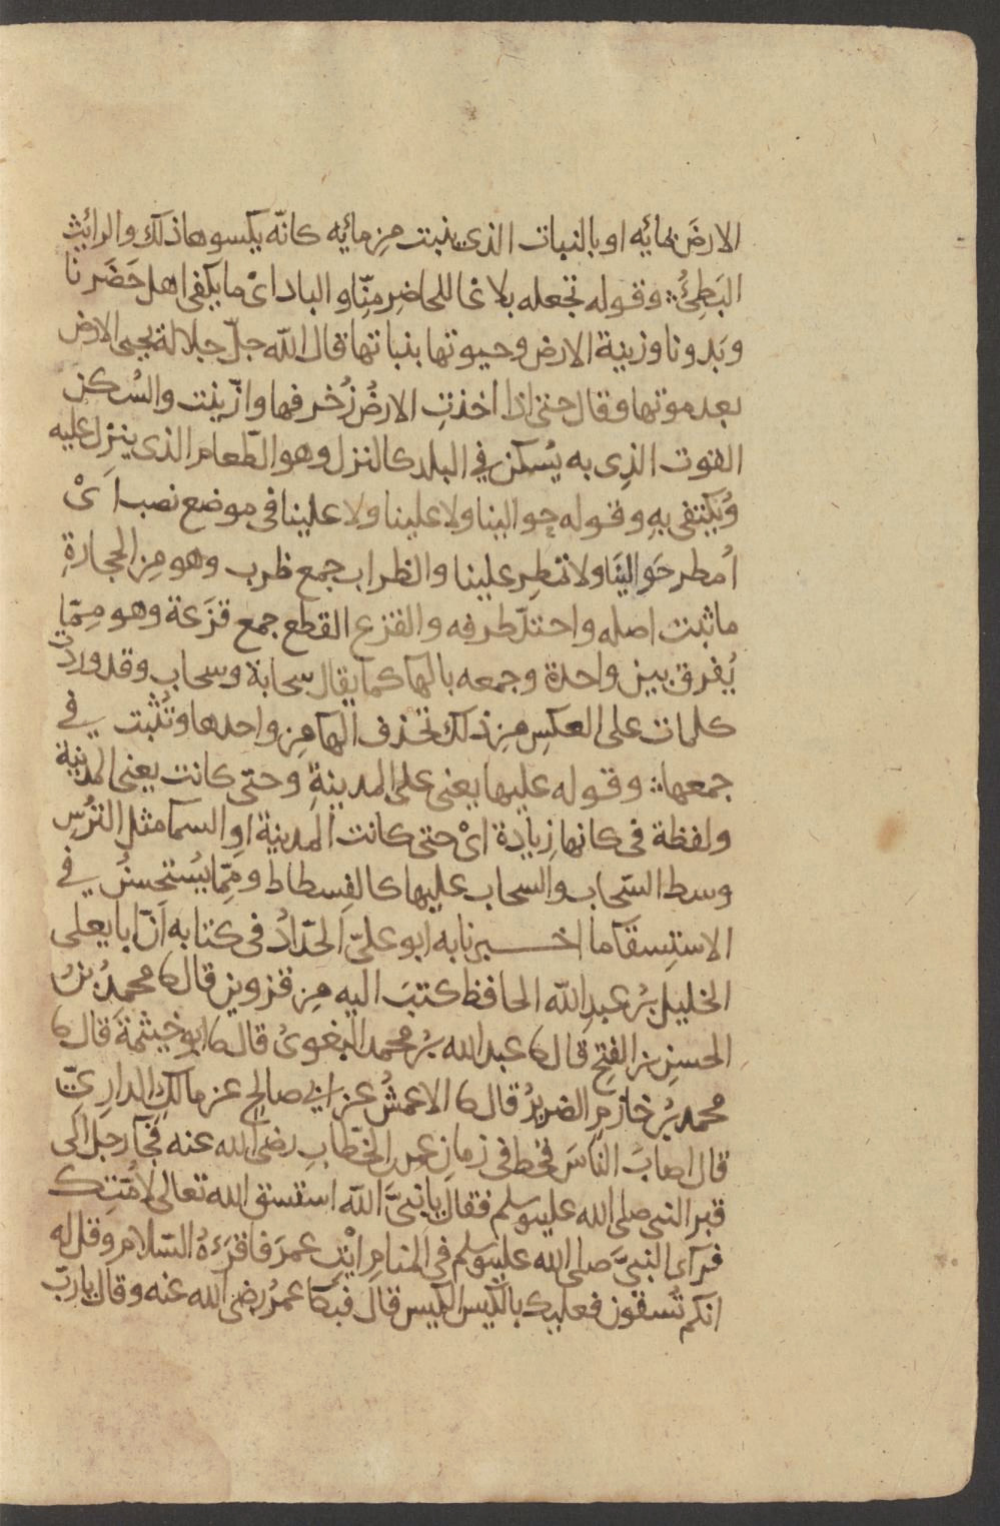 الارضَ بمائِه او بالنبات الذى ينبت مِن مائِه كانّه يكسوها ذلك والرائِث
البَطِئُ ؞ وقوله تجعله بلاغا للحاضِر مِنّا والباد اىْ ما يكفى اهل حَضَرنا
وبَدونا وزينة الارض وحيوتها بنباتها قال الله جلّ جلاله يحيى الارض
بعد موتها وقال حتى اذا اخذتِ الارضُ زُخرفها وازّينت والسُكن
القوت الذِى به يُسكن في البلد كالنزل وهو الطّعام الذى ينزل عليه
وُيكتفى بهِ وقوله حوالينا ولا علينا ولا علينا فى موضع نصب اَىْ
اُمطر حَوالينَا ولا تمطِر علينا والظراب جمع ظرب وهو مِن الحجارةِ
ما ثبت اصله واحتدّ طرفه والقزع القطع جمع قزَعة وهو مِمّا
يُفرق بين واحدة وجمعه بالهآ كما يقال سحابة وسحاب وقد ورد
كلمات على العكسِ مِن ذلك تحذف الهآ مِن واحدها وتُثبت في
جمعها ؞ وقوله عليها يعنى على المدينةِ وحتى كانت يعنى المدينة
ولفظة فى كانها زِيادة اىْ حتى كانت المدينة اوِ السمآ مثل التُرسِ
وسط السّحاب والسحاب عليها كالفِسطاط ومِمّا يُستحسنُ في
الاستِسقآ ما اخبرنا به ابو علىّ الحدّادُ فى كتابه اَنّ ابا يعلى
الخليل بنُ عبدِ الله الحافظ كتبَ اليه مِن قزوين قال ثا محمدُ بنُ
الحسنِ بن الفتحِ قال ثا عبد الله بنُ محمد البغوىُ قال ثا ابو خيثمةَ قال ثا
محمد بنُ خازمِ الضريرُ قال ثا الاعمشُ عن ابي صالحٍ عن مالكِ الدارِ
قال اصابَ الناسَ قحط فى زمانِ عمر بن الخطّابِ رضى الله عنه فجآ رجل الى
قبر النبى صلى الله عليه وسلم فقال يا نبىَّ الله استسق الله تعالى لامّتِك
فرآى النبىَّ صلى الله عليه وسلم فى المنامِ ائْتِ عمرَ فاقرَءهُ السّلام وقل له
انكم تُسقون فعليك بالكَيس الكَيس قال فبكآ عمرُ رضى الله عنه وقال يا ربّ